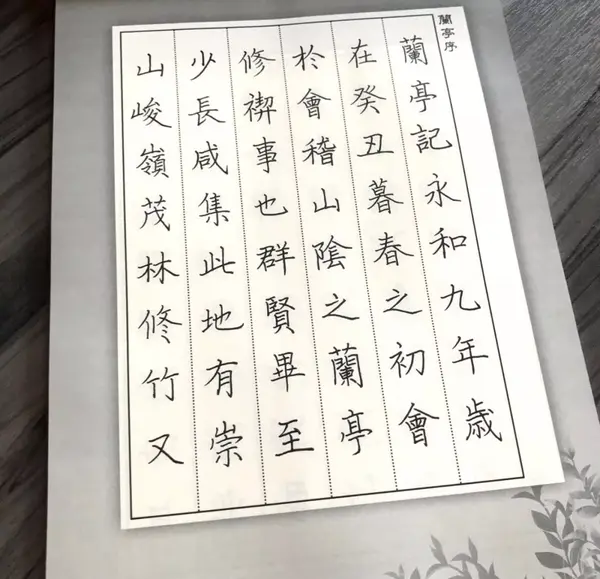 蘭亭序
蘭亭記永和九年歲
在癸丑暮春之初會
於會稽山陰之蘭亭
修禊事也群賢畢至
少長咸集此地有崇
山峻嶺茂林修竹又